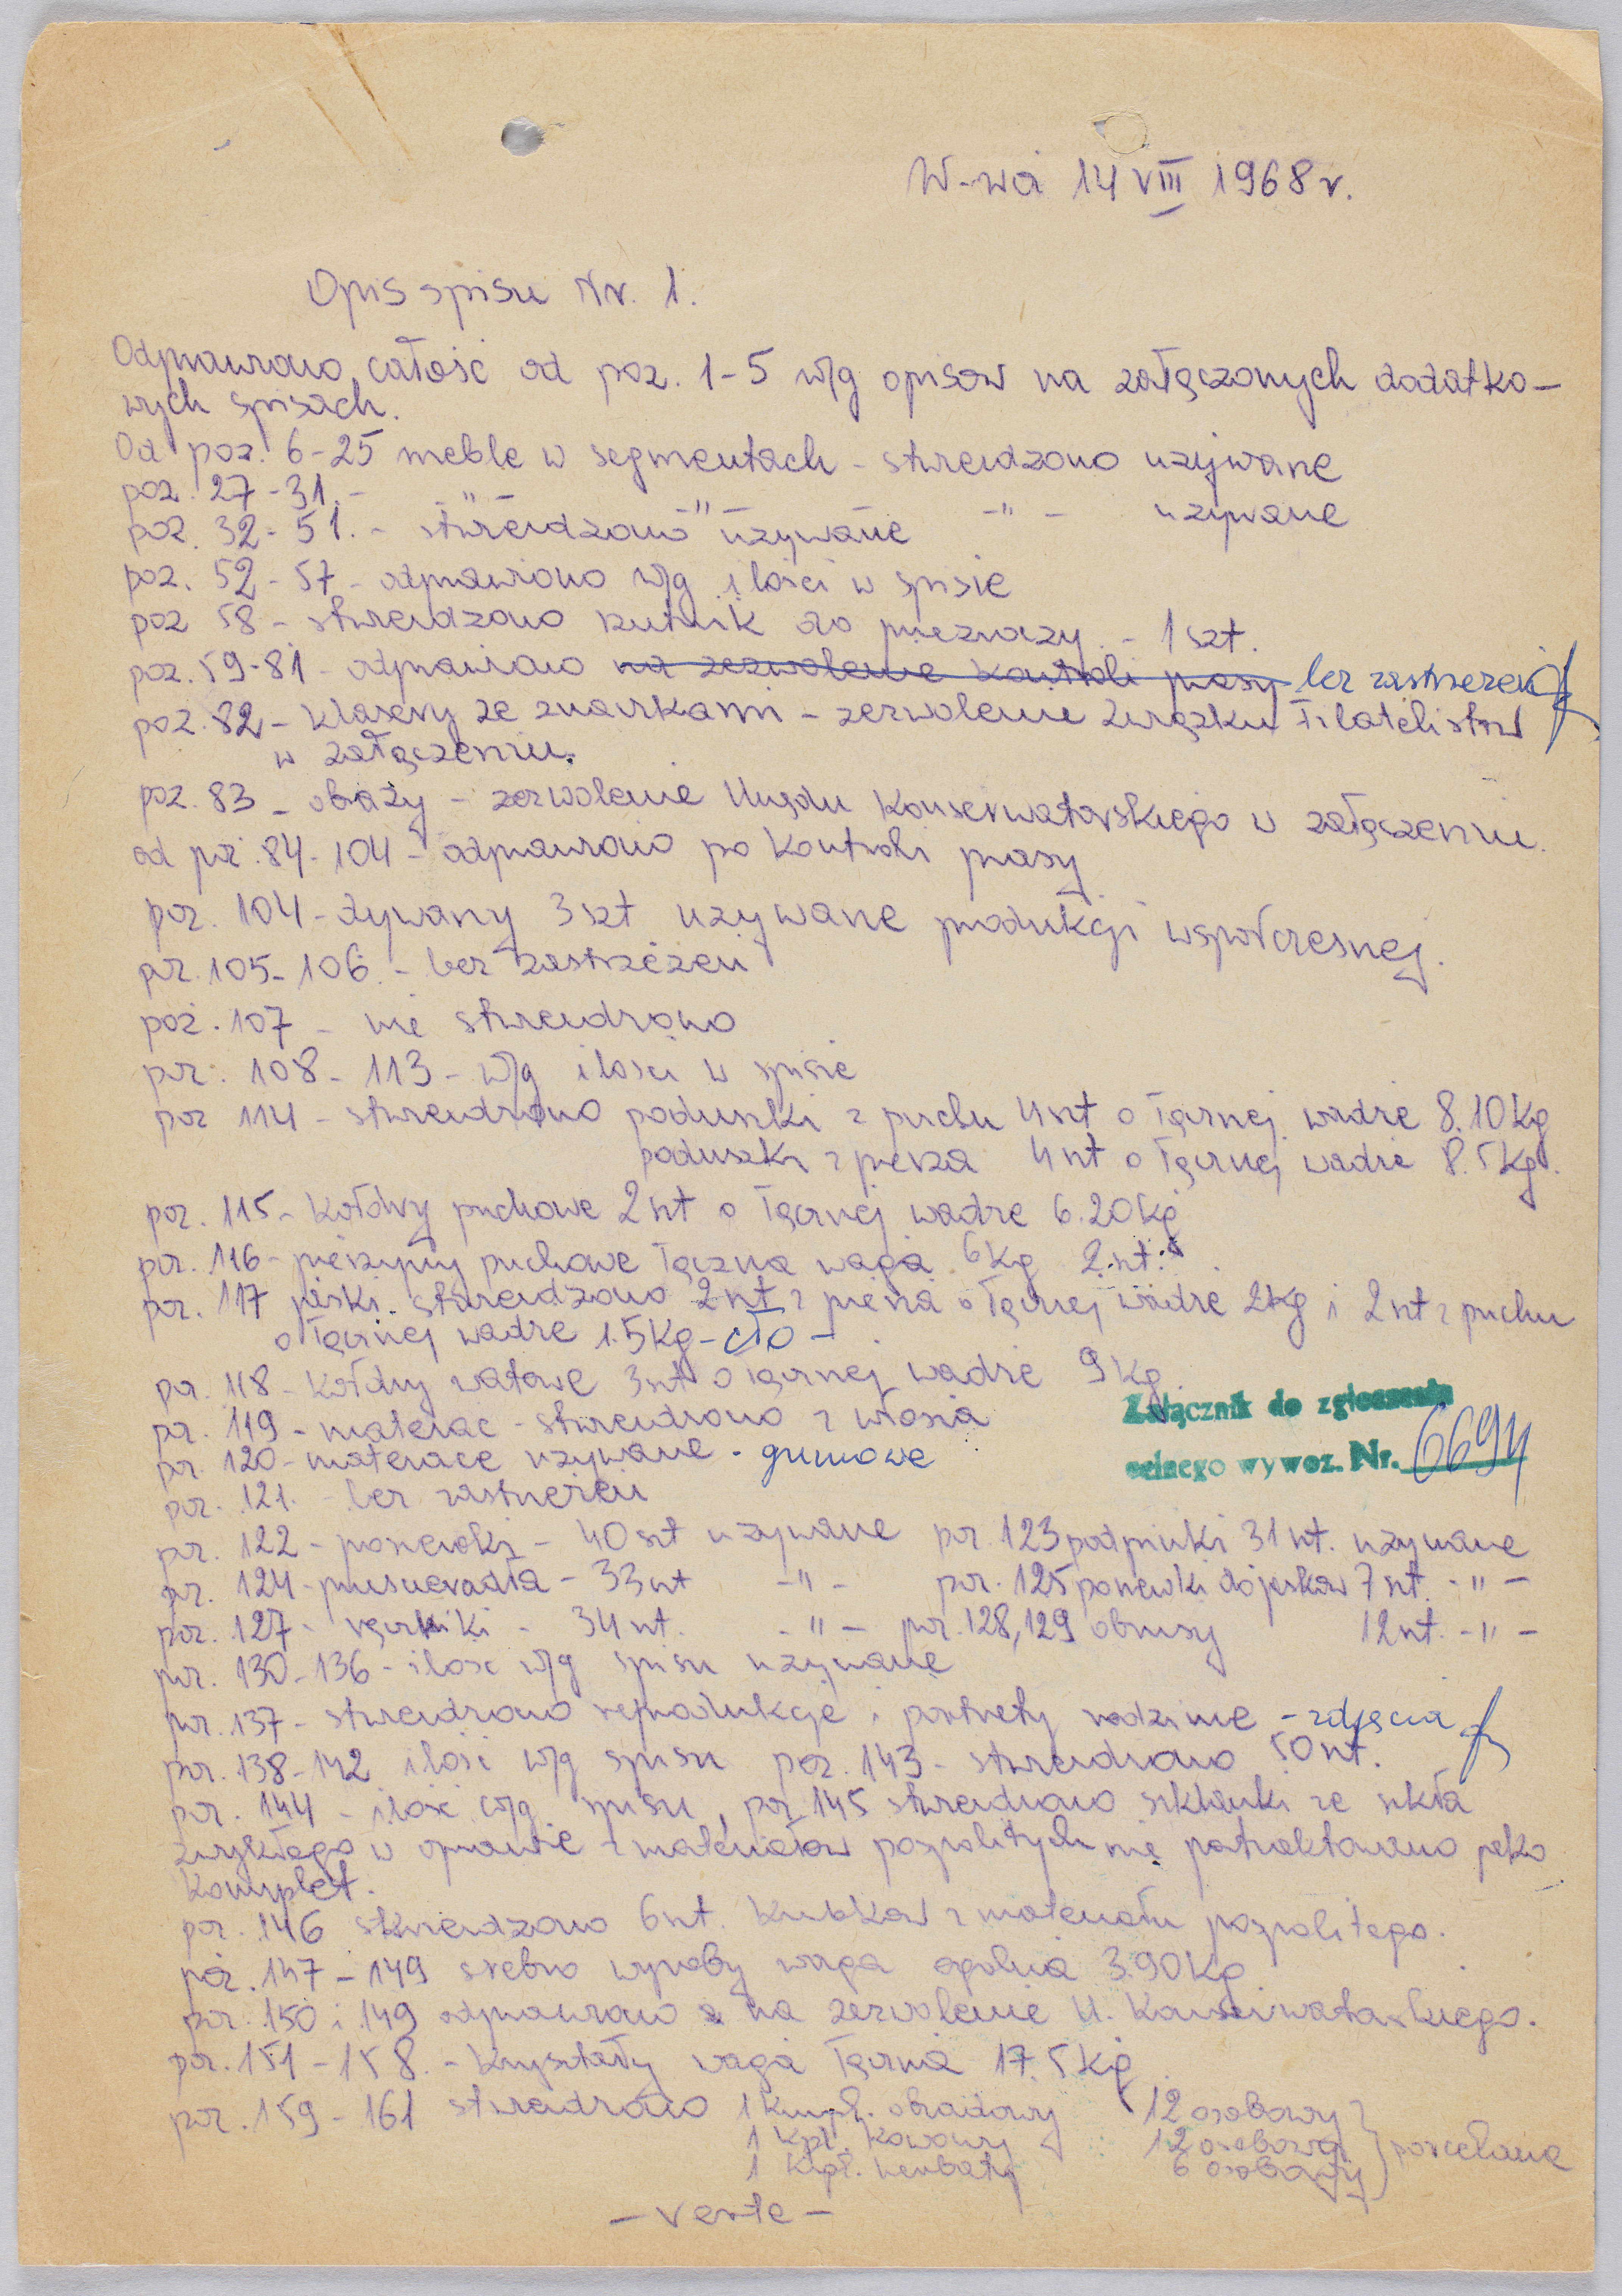 W-wa 14 VIII 1968 r.
Opis spisu Nr. 1.
Odprawiono całość od poz. 1-5 w/g opisow na załączonych dodatko-
wych spisach.
Od poz. 6-25 meble w segmentach - stwierdzono używane
poz. 27-31. - -"- -"- -"- używane
poz. 32-51. - stwierdzono używane
poz. 52-57 - odprawiono w/g ilości w spisie
poz 58 - stwierdzono rzutnik do przezroczy - 1 szt.
poz. 59-81 - odprawiono na zezwolenie Kontroli prasy bez zastrzeżeń
poz. 82 - Klasery ze znaczkami - zezwolenie Związku Filatelistów
w załączeniu.
poz. 83 - obrazy - zezwolenie Urzędu Konserwatorskiego w załączeniu.
od poz. 84-104 - odprawiono po Kontroli prasy
poz. 104 - dywany 3 szt używane produkcji współczesnej.
poz. 105-106. - bez zastrzeżeń
poz. 107 - nie stwierdzono
poz. 108-113 - w/g ilości w spisie
poz 114 - stwierdzono poduszki z puchu 4 szt o łącznej wadze 8.10 Kg
poduszki z pierza 4 szt o łącznej wadze 8.5 Kg.
poz. 115 - Kołdry puchowe 2 szt o łącznej wadze 6.20 Kg
poz. 116 - pierzyny puchowe łączna waga 6 Kg 2 szt.
poz. 117 jaśki. stwierdzono 2 szt z pierza o łącznej wadze 2 Kg i 2 szt z puchu
o łącznej wadze 1.5 Kg - cło -
poz. 118 - Kołdry watowe 3 szt o łącznej wadze 9 Kg.
poz. 119 - materac - stwierdzono z włosia
poz. 120 - materace używane - gumowe
Załącznik do zgłoszenia
celnego wywoz. Nr. 6694
poz. 121. - bez zastrzeżeń
poz. 122 - poszewki - 40 szt używane poz. 123 podpinki 31 szt. używane
poz. 124 - prześcieradła - 33 szt -"- poz. 125 poszewki do jaśków 7 szt. -"-
poz. 127 - ręczniki - 34 szt. -"- poz. 128, 129 obrusy 12 szt. -"-
poz. 130-136 - ilość w/g spisu używane
poz. 137 - stwierdzono reprodukcje i portrety rodzinne - zdjęcia
poz. 138-142 ilość w/g spisu poz. 143 - stwierdzono 50 szt.
poz. 144 - ilość w/g spisu, poz. 145 stwierdzono szklanki ze szkła
zwykłego w oprawie z materiałów pospolitych nie potraktowano jako
Komplet.
poz. 146 stwierdzono 6 szt. Kubków z materiału pospolitego.
poz. 147-149 srebro wyroby waga ogólna 3.90 Kg.
poz. 150 i 149 odprawiono na zezwolenie U. Konserwatorskiego.
poz. 151-158. - Kryształy waga łączna 17.5 Kg
poz. 159-161 stwierdzono 1 Kmpl. obiadowy 12 osobowy
1 Kpl. Kawowy 12 osobowy porcelana
1 Kpl. herbaty 6 osobowy
- verte -